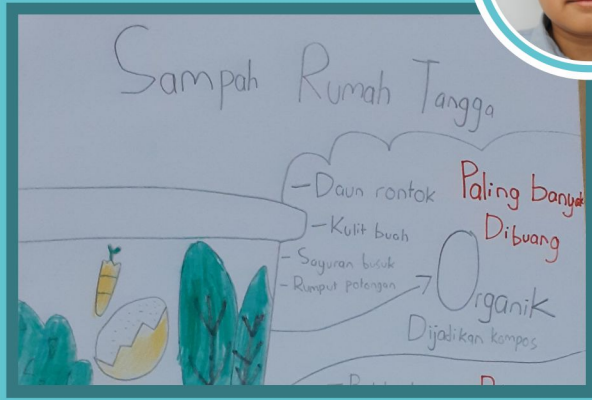 Sampah Rumah Tangga
- Daun rontok
- Kulit buah
- Sayuran busuk
- Rumput potongan
Paling banyak
Dibuang
Organik
Dijadikan kompos